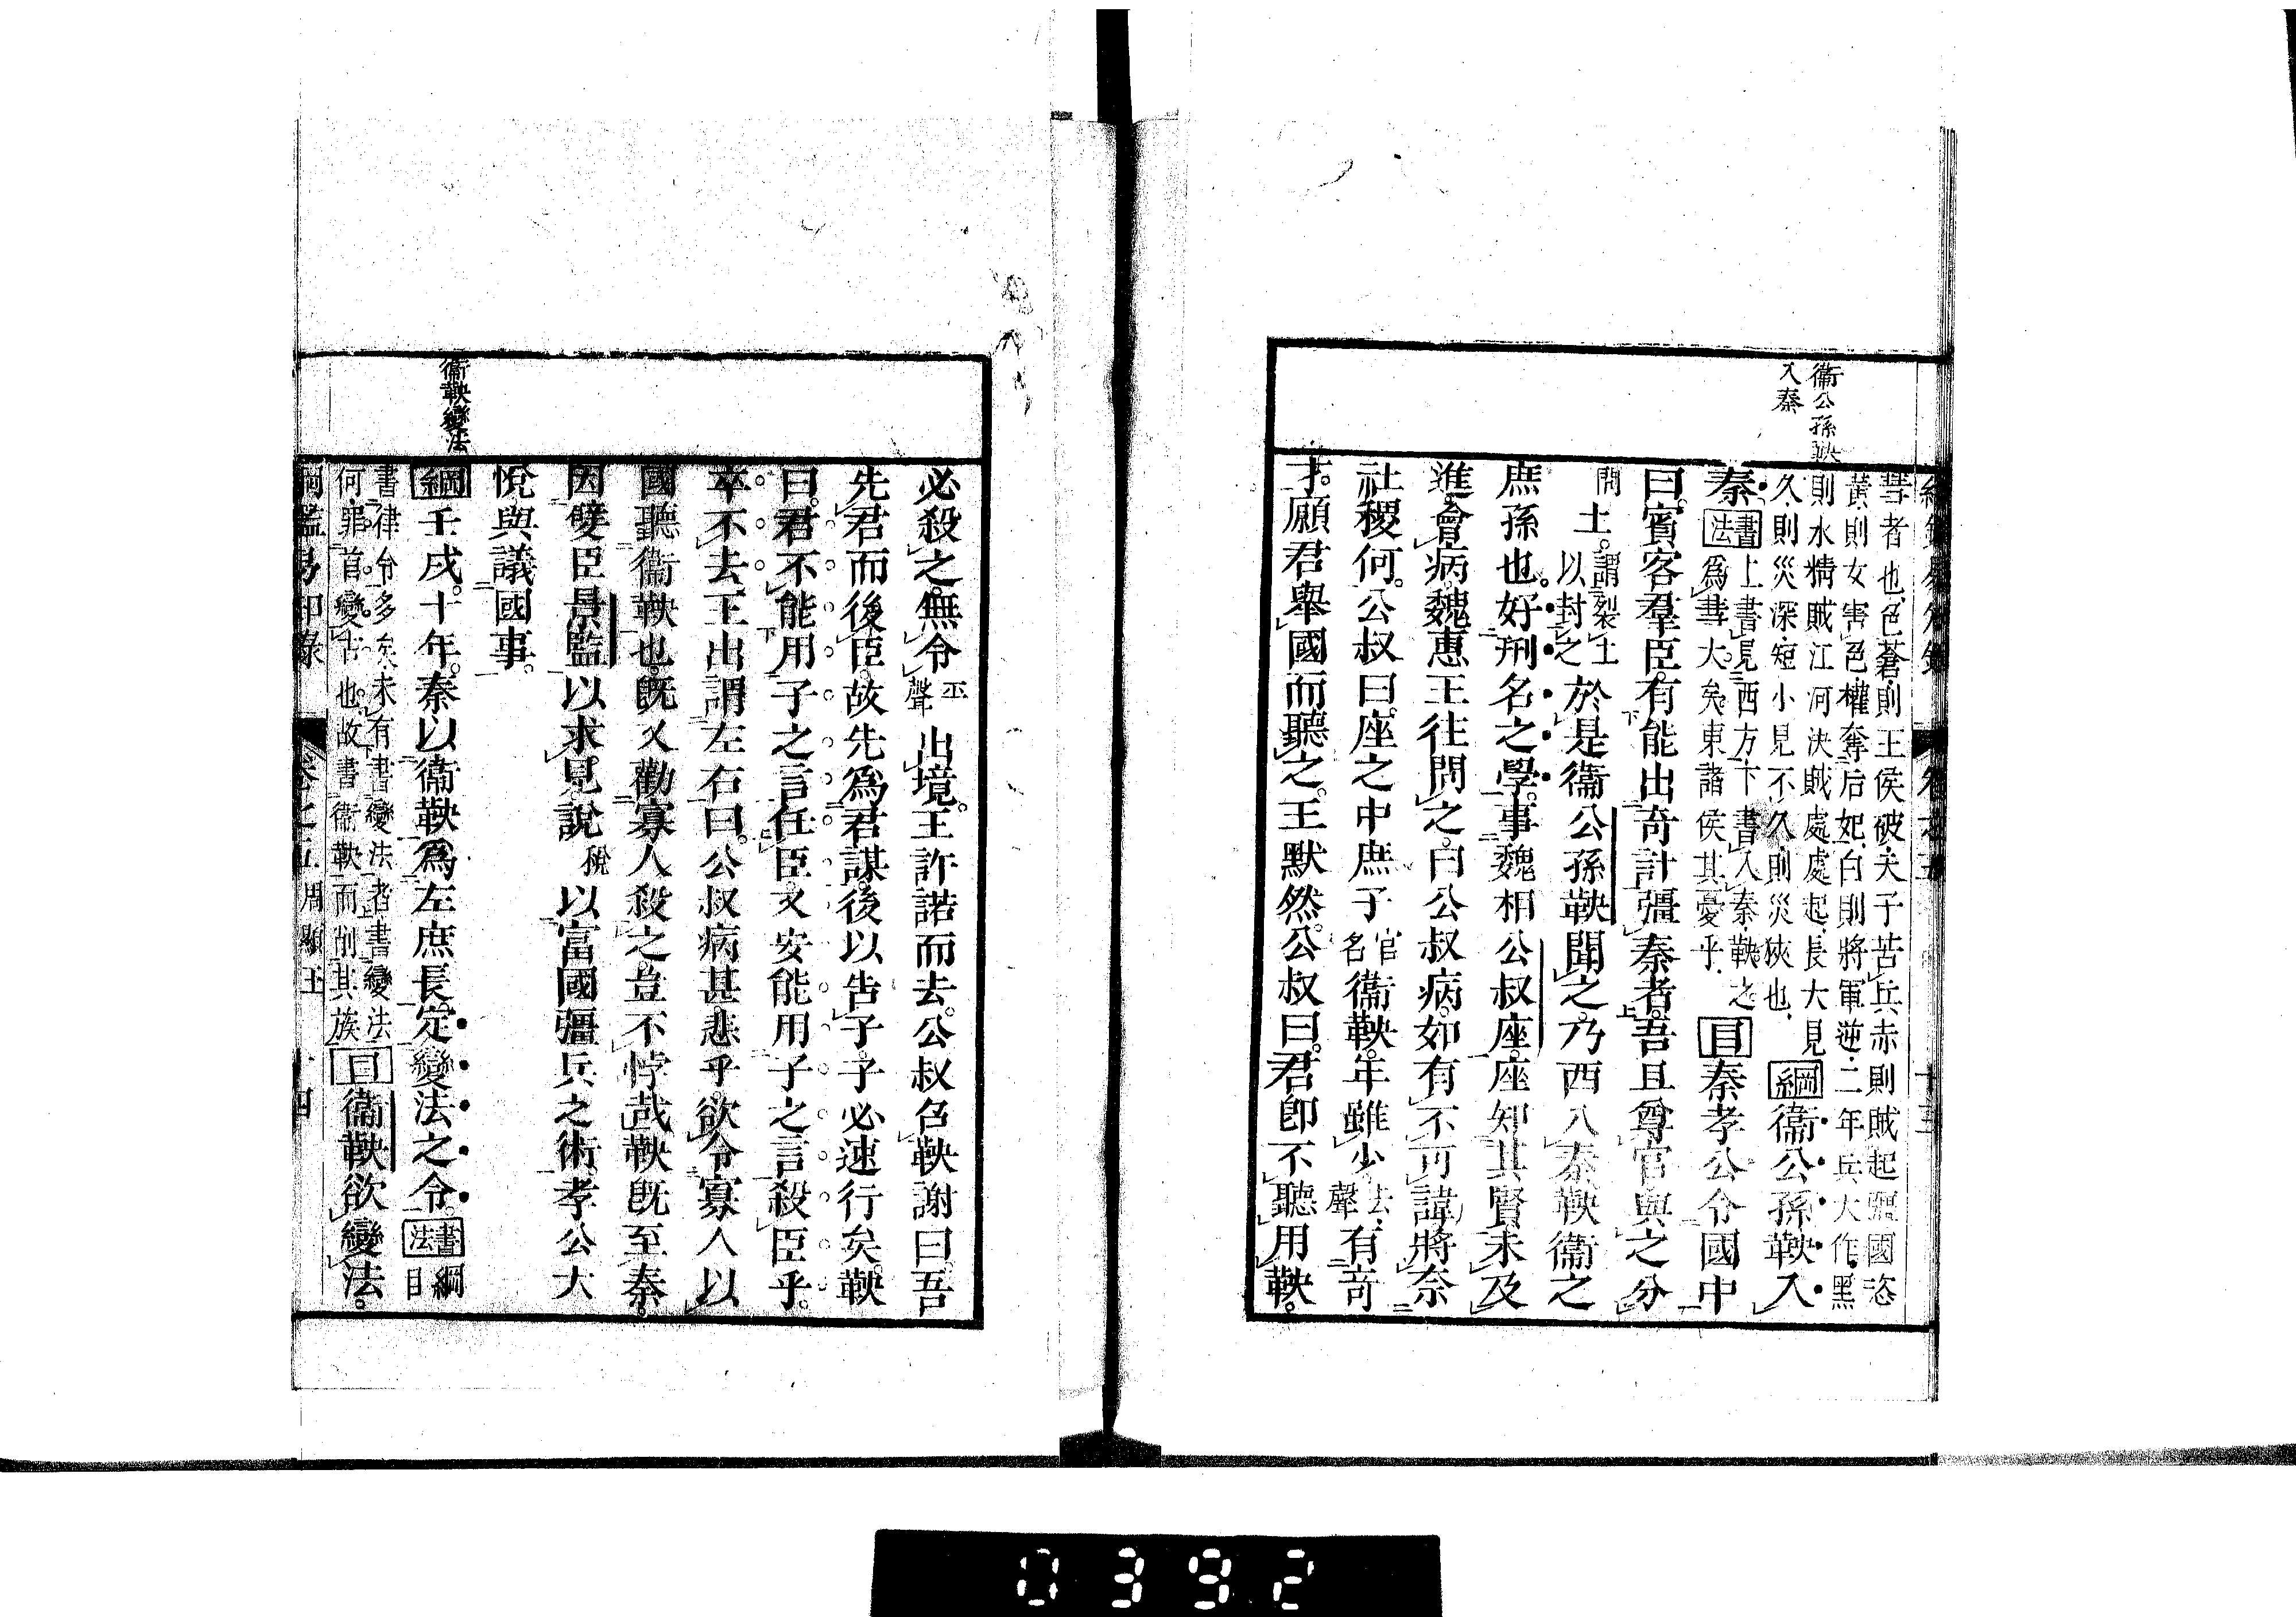 衞公孫鞅
入秦
彗者也色蒼則王侯破天子苦兵赤則賊起彊國恣
黃則女害色權奪后妃白則將軍逆二年兵大作黑
則水精賊江河決賊處處起長大見
久則災深短小見不久則災狹也
綱衞公孫鞅入
秦書法
上書見西方下書入秦鞅之
爲彗大矣東諸侯其憂乎
目秦孝公令國中
曰賓客羣臣有能出奇計彊秦者吾且尊官與之分
土謂裂土以封之於是衞公孫鞅聞之乃西入秦鞅衞之
庶孫也好刑名之學事魏相公叔座座知其賢未及
進會病魏惠王往問之曰公叔病如有不可諱將奈
社稷何公叔曰座之中庶子官名衞鞅年雖少去聲有奇
才願君舉國而聽之王默然公叔曰君卽不聽用鞅
必殺之無令平聲出境王許諾而去公叔召鞅謝曰吾
先君而後臣故先爲君謀後以告子子必速行矣鞅
曰君不能用子之言任臣又安能用子之言殺臣乎
卒不去王出謂左右曰公叔病甚悲乎欲令寡人以
國聽衞鞅也既又勸寡人殺之豈不悖哉鞅既至秦
因嬖臣景監以求見說稅以富國彊兵之術孝公大
悅與議國事
衞鞅變法
綱壬戌十年秦以衞鞅爲左庶長定變法之令書法綱目
書律令多矣未有書變法者書變法
何罪首變古也故書衞鞅而削其族
目衞鞅欲變法
綱鑑易知錄 卷之五 周顯王 十四